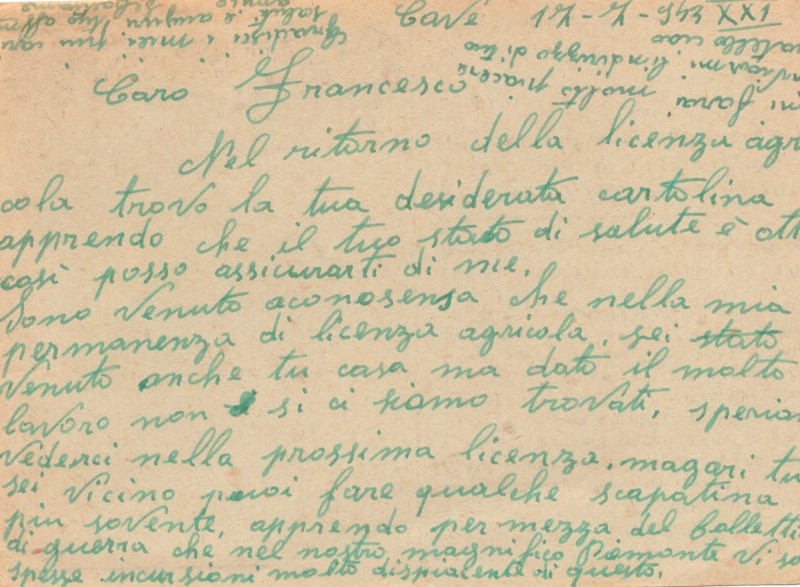 Cave 17-7-943 XXI
Caro Francesco
Nel ritorno della licenza agri
cola trovo la tua desiderata cartolina
apprendo che il tuo stato di salute è ott
così posso assicurarti di me.
Sono venuto aconosensa che nella mia
permanenza di licenza agricola, sei stato
venuto anche tu casa ma dato il molto
lavoro non si ci siamo trovati, sperian
vederci nella prossima licenza, magari tu
sei vicino puoi fare qualche scapatina
piu sovente, apprendo per mezza del bolletti
di guerra che nel nostro magnifico Piemonte vi so
spesse incursioni molto dispiacente di questo.
mi farà molto piacere
l'indirizzo di tuo
fratello ciao
Gradisci i miei più cari
saluti e
amico